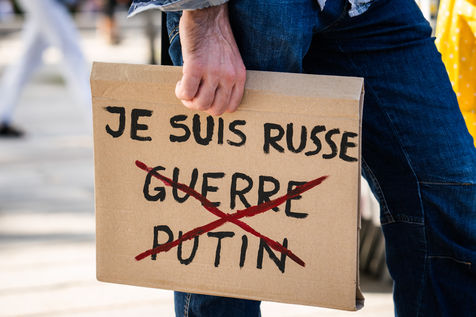 JE SUIS RUSSE
GUERRE
PUTIN